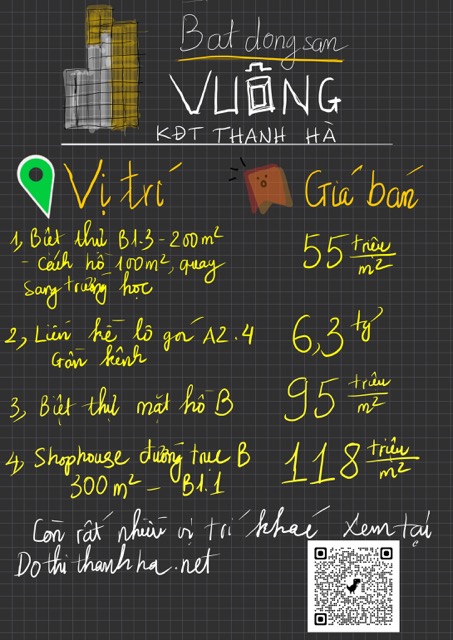 Bat dong san
VUÔNG
KĐT THANH HÀ
Vị trí
Giá bán
1, Biệt thự B1.3 - 200m²
- Cách hồ 100m², quay
sang trường học
55 triệu/m²
2, Liền kề lô góc A2.4
Gần kênh
6,3 tỷ
3, Biệt thự mặt hồ B
95 triệu/m²
4, Shophouse đường trục B
300m² - B1.1
118 triệu/m²
Còn rất nhiều vị trí khác xem tại
Dothithanhha.net